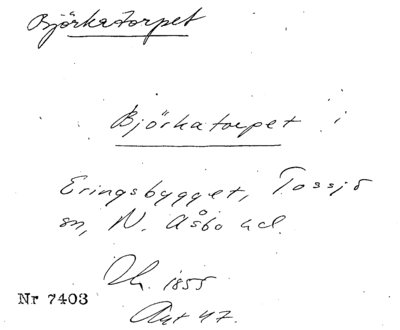 Björkatorpet
Björkatorpet i
Eringsbygget, Tossjö
sn, N. Åsbo hd.
Dh. 1855
Akt 47.
Nr 7403